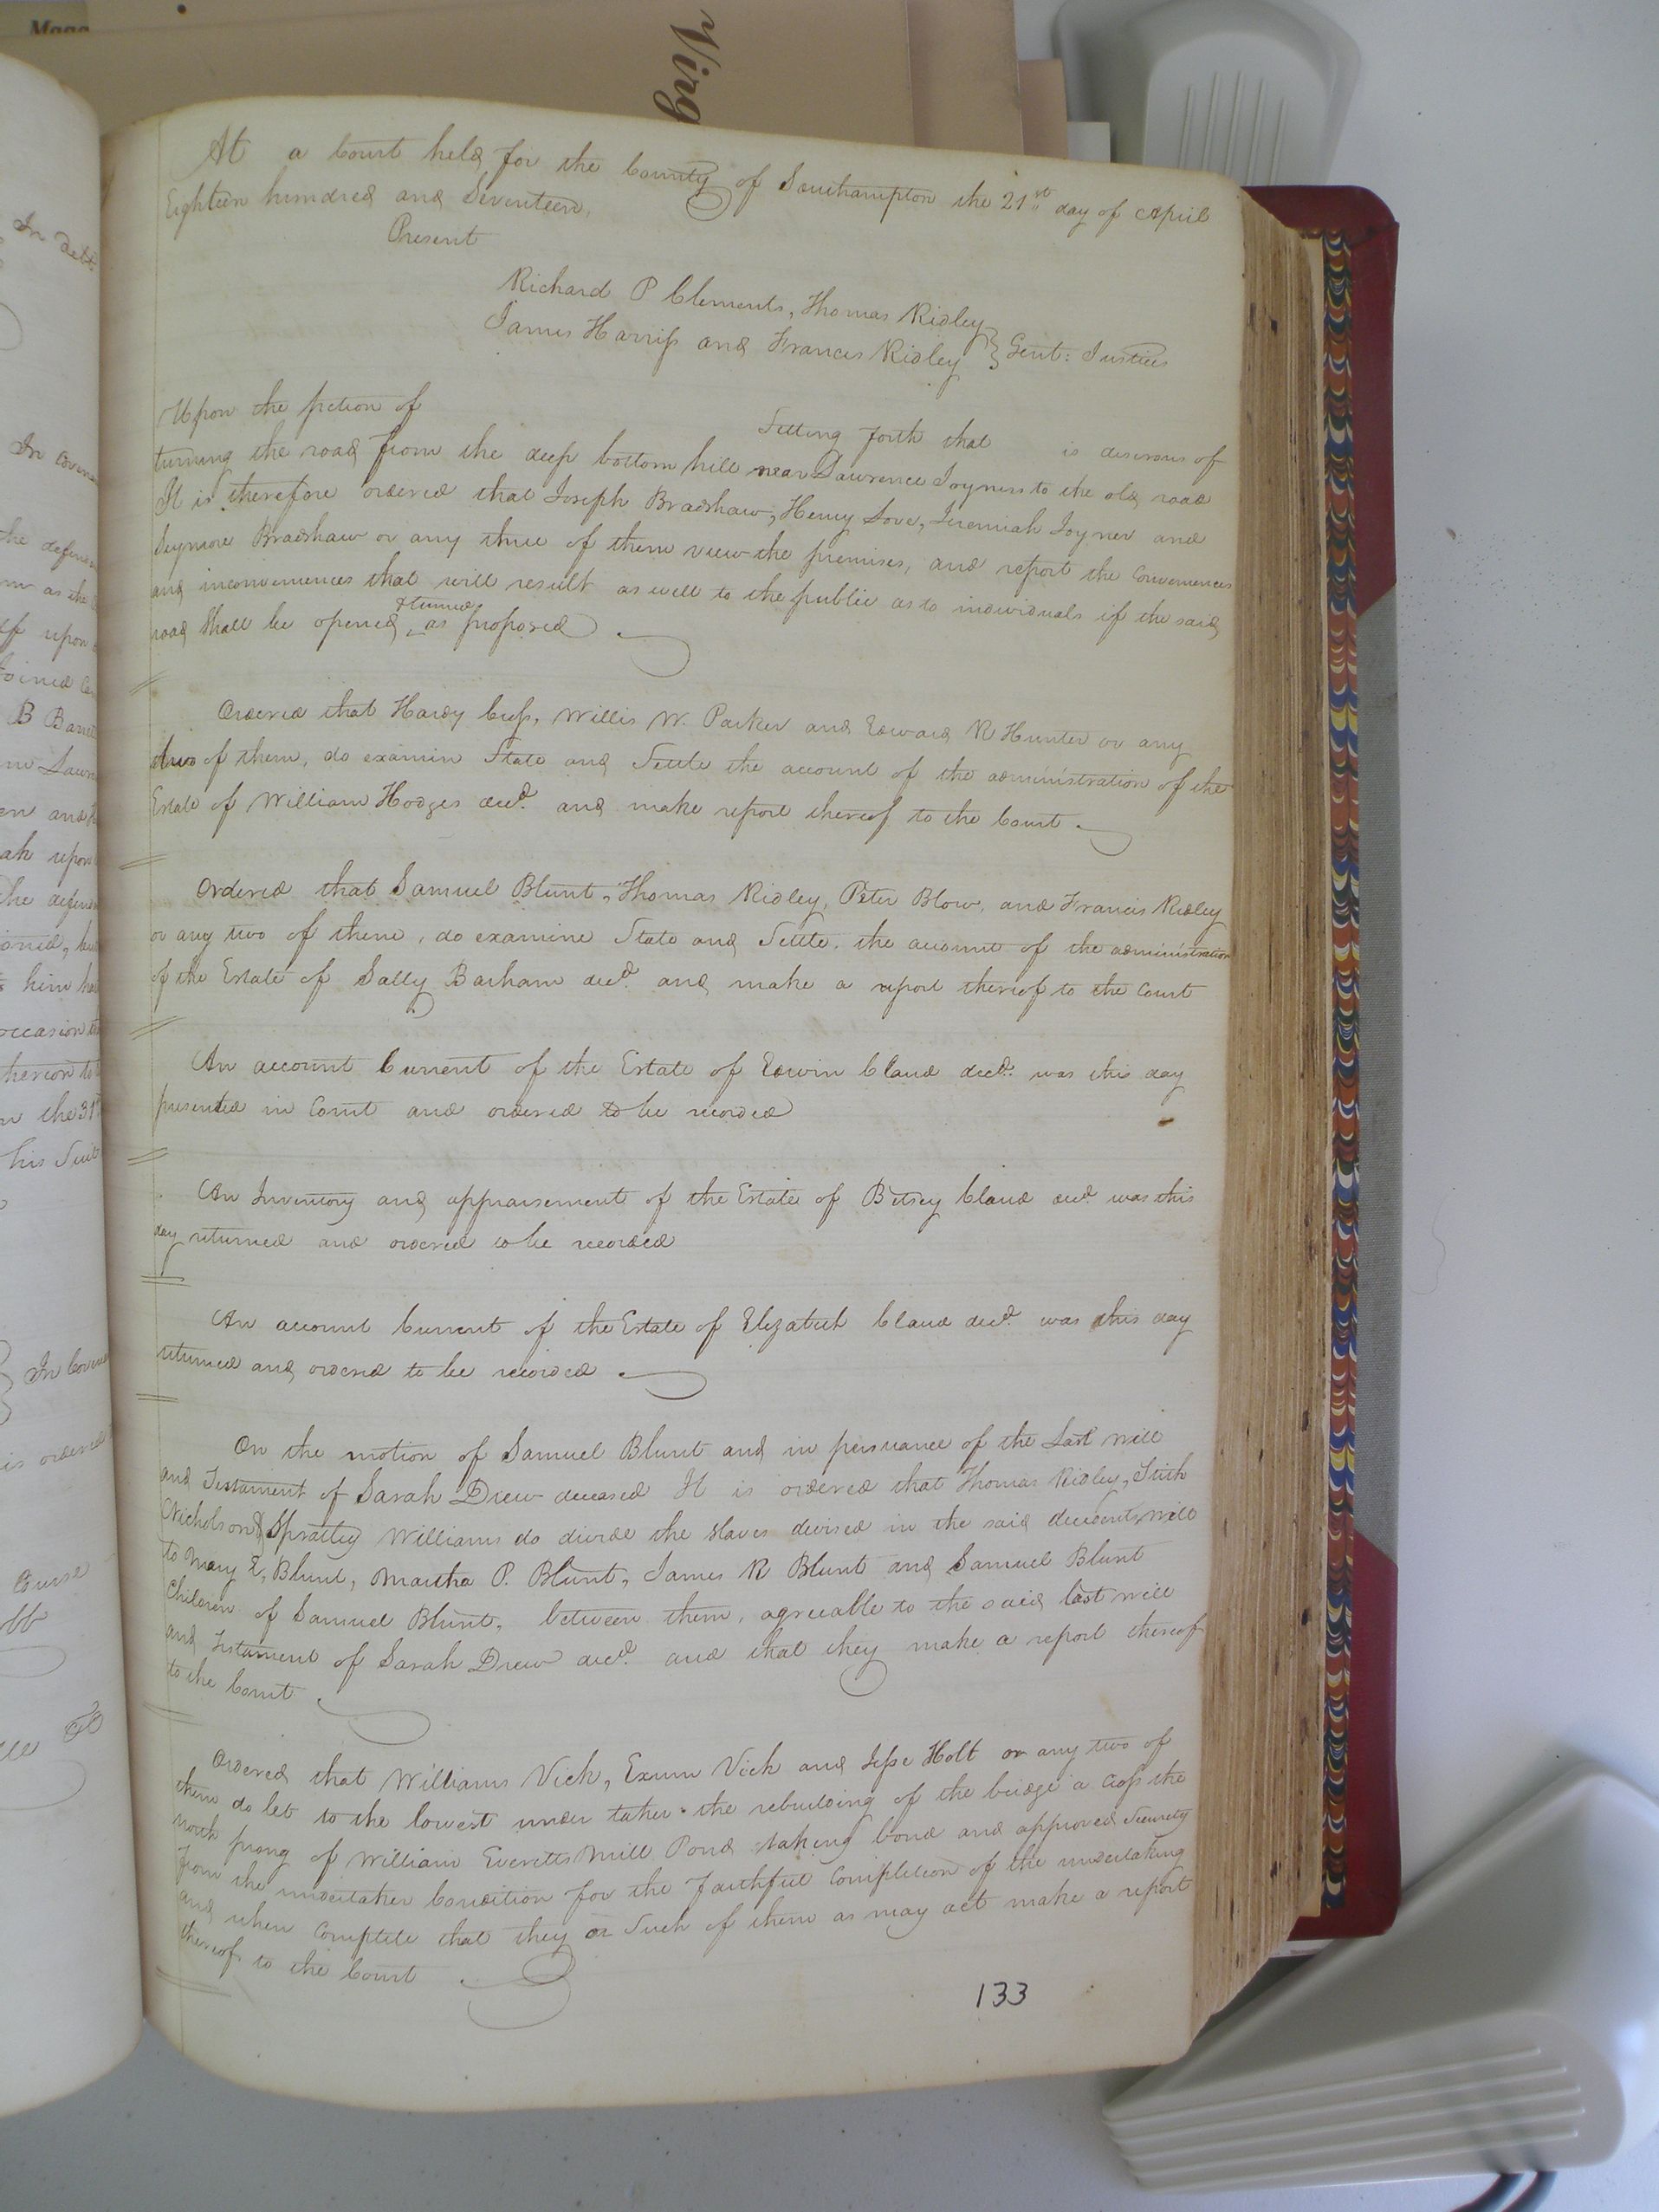 Virg
In Debt
At a Court held for the County of Southampton the 21st day of April
Eighteen hundred and Seventeen,
Present
Richard P Clements, Thomas Ridley
James Harriss and Francis Ridley } Gent: Justices
Upon the petion of
Setting forth that is desirous of
turning the road from the deep bottom hill near Lawrence Joyners to the old road
It is therefore ordered that Joseph Bradshaw, Henry Love, Jeremiah Joyner and
Seymore Bradshaw or any three of them view the premises, and report the Conveniences
and inconveniences that will result as well to the public as to individuals if the said
road Shall be opened & turned as proposed
Ordered that Hardy Cross, Willis W. Parker and Edward R Hunter or any
two of them, do examin State and Settle the account of the administration of the
Estate of William Hodges decd. and make report thereof to the Court
Ordered that Samuel Blunt, Thomas Ridley, Peter Blow, and Francis Ridley
or any two of them, do examine State and Settle, the account of the administration
of the Estate of Sally Barham decd. and make a report thereof to the Court
An account Current of the Estate of Edwin Claud decd. was this day
presented in Court and ordered to be recorded
An Inventory and appraisement of the Estate of Betsey Claud decd. was this
day returned and ordered to be recorded
An account Current of the Estate of Elizabeth Claud decd. was this day
returned and ordered to be recorded
On the motion of Samuel Blunt and in persuance of the Last will
and Testament of Sarah Drew deceased It is ordered that Thomas Ridley, Stith
Nicholson & Spratley Williams do divide the slaves devised in the said decedents will
to Mary E, Blunt, Martha P. Blunt, James R Blunt and Samuel Blunt
Children of Samuel Blunt, between them, agreeable to the said last will
and Testament of Sarah Drew decd. and that they make a report thereof
to the Court
Ordered that Williams Vick, Exum Vick and Jesse Holt or any two of
them do let to the lowest under taker the rebuilding of the bridge a Cross the
north prong of William Everetts Mill Pond taking bond and approved Security
from the undertaker Condition for the faithful Completion of the undertaking
and when Complete that they or Such of them as may act make a report
thereof to the Court
133